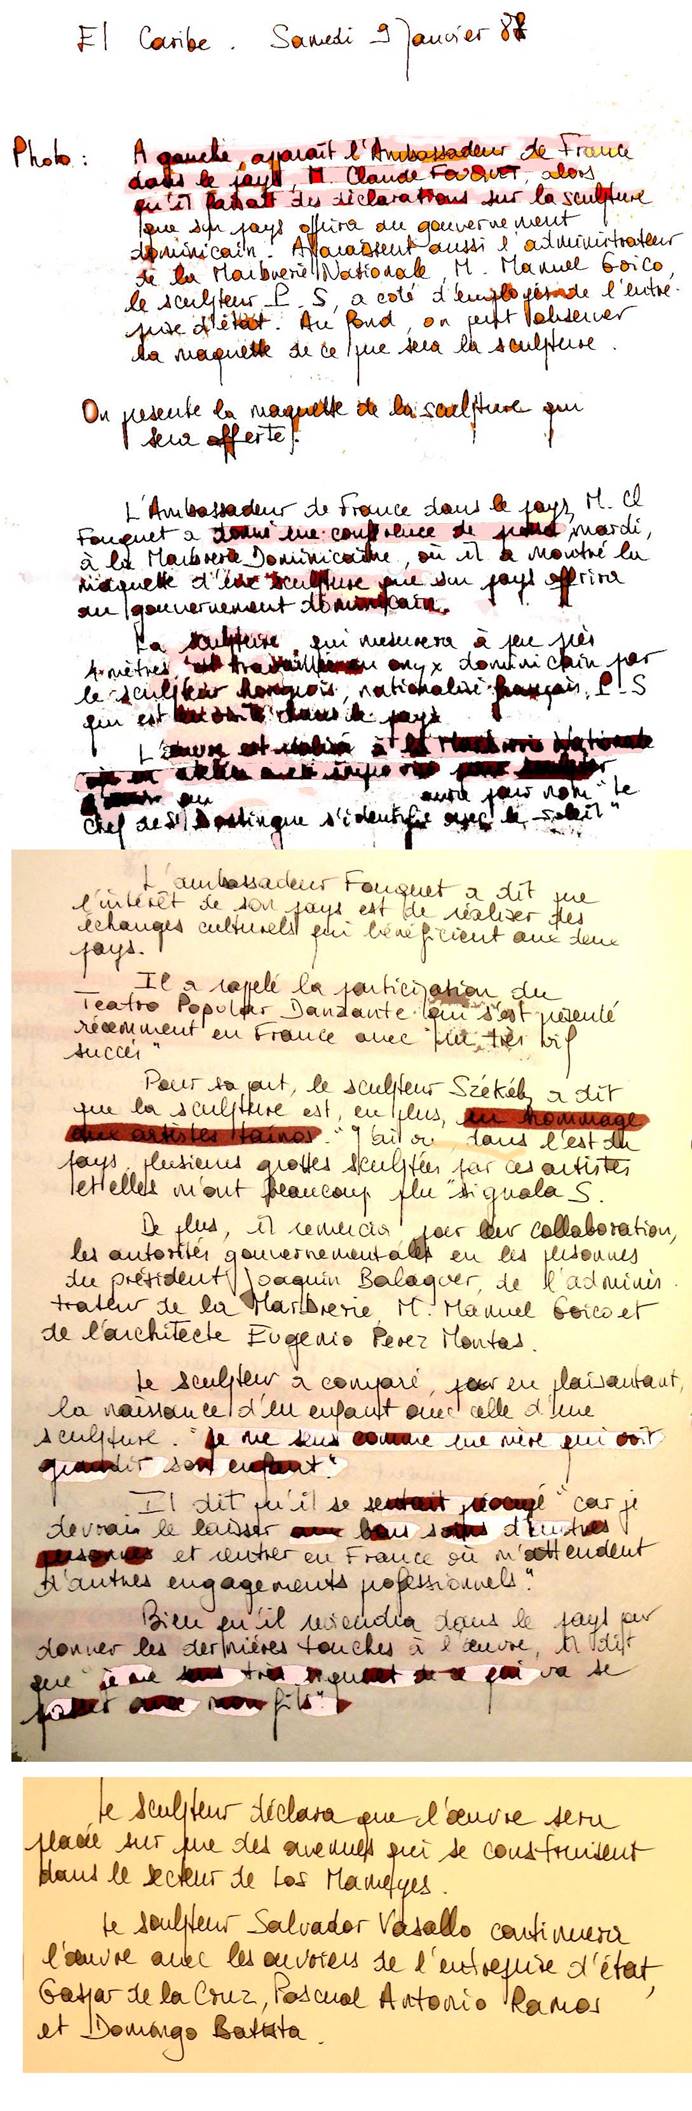 El Caribe. Samedi 9 Janvier 88
Photo : A gauche, apparaît l'Ambassadeur de France
dans le pays, M. Claude FOUQUET, alors
qu'il faisait des déclarations sur la sculpture
que son pays offrira au gouvernement
dominicain. Apparaissent aussi l'administrateur
de la Marbrerie Nationale, M. Manuel Goico,
le sculpteur P. S, a coté d'employés de l'entre-
prise d'état. Au fond, on peut observer
la maquette de ce que sera la sculpture.
On présente la maquette de la sculpture qui
sera offerte.
L'Ambassadeur de France dans le pays, M. Cl
Fouquet a donné une conférence de presse mardi,
à la Marbrerie Dominicaine, où il a montré la
maquette d'une sculpture que son pays offrira
au gouvernement dominicain.
La sculpture, qui mesurera à peu près
4 mètres est travaillée en onyx dominicain par
le sculpteur hongrois, nationalisé français, P. S
qui est en visite dans le pays.
L'œuvre est réalisé à la Marbrerie Nationale
aura pour nom "Le
Chef de St Domingue s'identifie avec le soleil"
L'ambassadeur Fouquet a dit que
l'intérêt de son pays est de réaliser des
échanges culturels qui bénéficient aux deux
pays.
Il a rappelé la participation du
Teatro Popular Danzante qui s'est présenté
récemment en France avec "un très vif
succès"
Pour sa part, le sculpteur Székély a dit
que la sculpture est, en plus, un hommage
aux artistes taïnos. "J'ai vu, dans l'est du
pays, plusieurs grottes sculptées par ces artistes
et elles m'ont beaucoup plu" signala S.
De plus, il remercia pour leur collaboration,
les autorités gouvernementales en les personnes
du président Joaquin Balaguer, de l'adminis-
trateur de la Marbrerie, M. Manuel Goico et
de l'architecte Eugenio Perez Montas.
Le sculpteur a comparé, pour en plaisantant,
la naissance d'un enfant avec celle d'une
sculpture. "Je me sens comme une mère qui voit
grandir son enfant."
Il dit qu'il se sentait préocupé "car je
devrais le laisser aux bons soins d'autres
personnes et rentrer en France où m'attendent
d'autres engagements professionnels."
Bien qu'il reviendra dans le pays pour
donner les dernières touches à l'œuvre, il dit
que "je me sens très inquiet de ce qui va se
passer avec mon fils".
Le sculpteur déclara que l'œuvre sera
placée sur une des avenues qui se construisent
dans le secteur de Los Mameyes.
Le sculpteur Salvador Vasallo continuera
l'œuvre avec les ouvriers de l'entreprise d'état,
Gaspar de la Cruz, Pascual Antonio Ramos
et Domingo Batista.